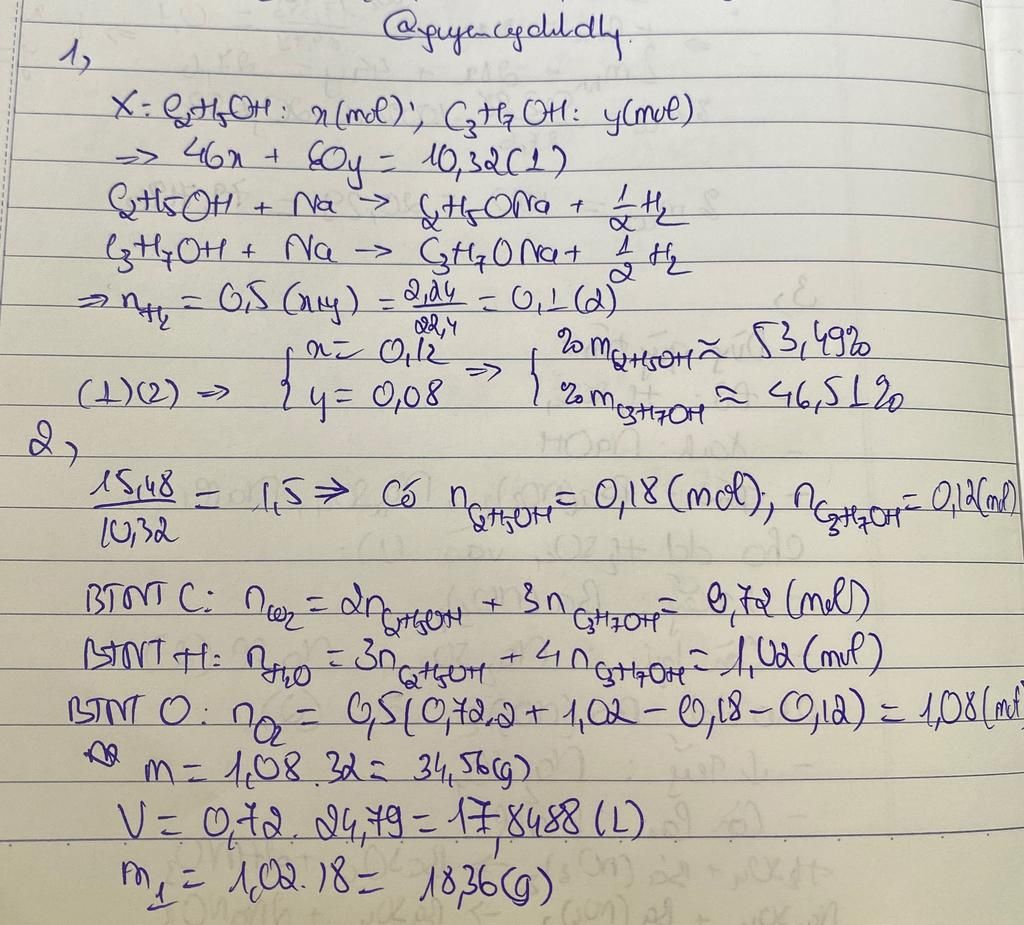 1,
X: C2H5OH: x(mol); C3H7OH: y(mol)
=> 46x + 60y = 10,32(1)
C2H5OH + Na → C2H5ONa + 1/2 H2
C3H7OH + Na → C3H7ONa + 1/2 H2
=> nH2 = 0,5 (x+y) = 2,24/22,4 = 0,1(2)
(1)(2) => { x = 0,12 y = 0,08 => { %mC2H5OH ≈ 53,49% %mC3H7OH ≈ 46,51%
2,
15,48/10,32 = 1,5 => Có nC2H5OH = 0,18(mol); nC3H7OH = 0,12(mol)
BTNT C: nCO2 = 2nC2H5OH + 3nC3H7OH = 0,72 (mol)
BTNT H: nH2O = 3nC2H5OH + 4nC3H7OH = 1,02 (mol)
BTNT O: nO2 = 0,5(0,72.2 + 1,02 - 0,18 - 0,12) = 1,08(mol
m = 1,08.32 = 34,56(g)
V = 0,72. 24,79 = 17,8488 (L)
m1 = 1,02.18 = 18,36(g)